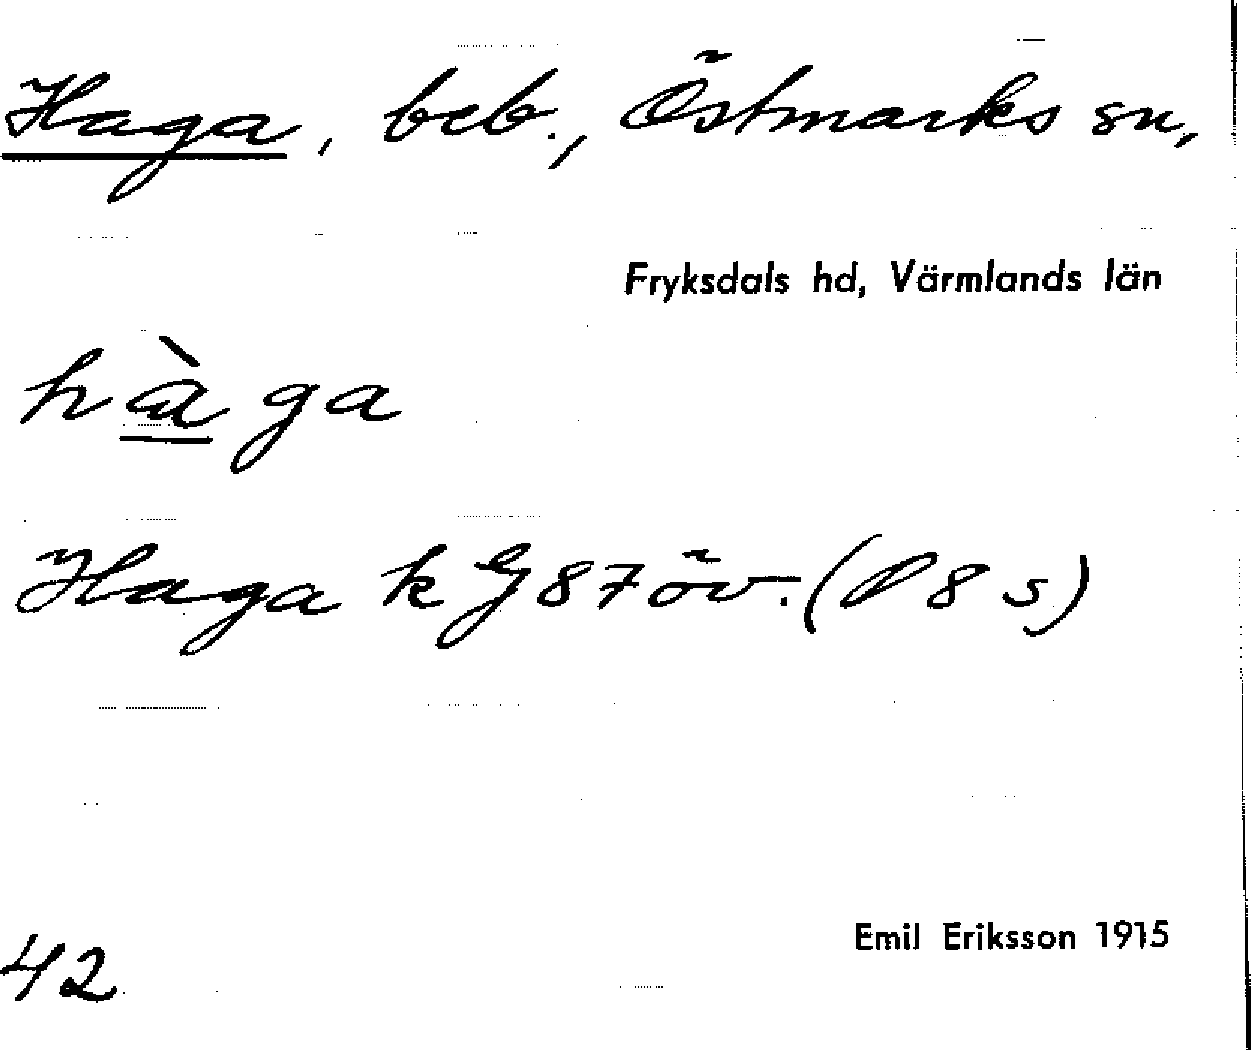 Haga, beb., Östmarks sn,
Fryksdals hd, Värmlands län
hàga
Haga k G 87 öv. (D 8 s)
Emil Eriksson 1915
42